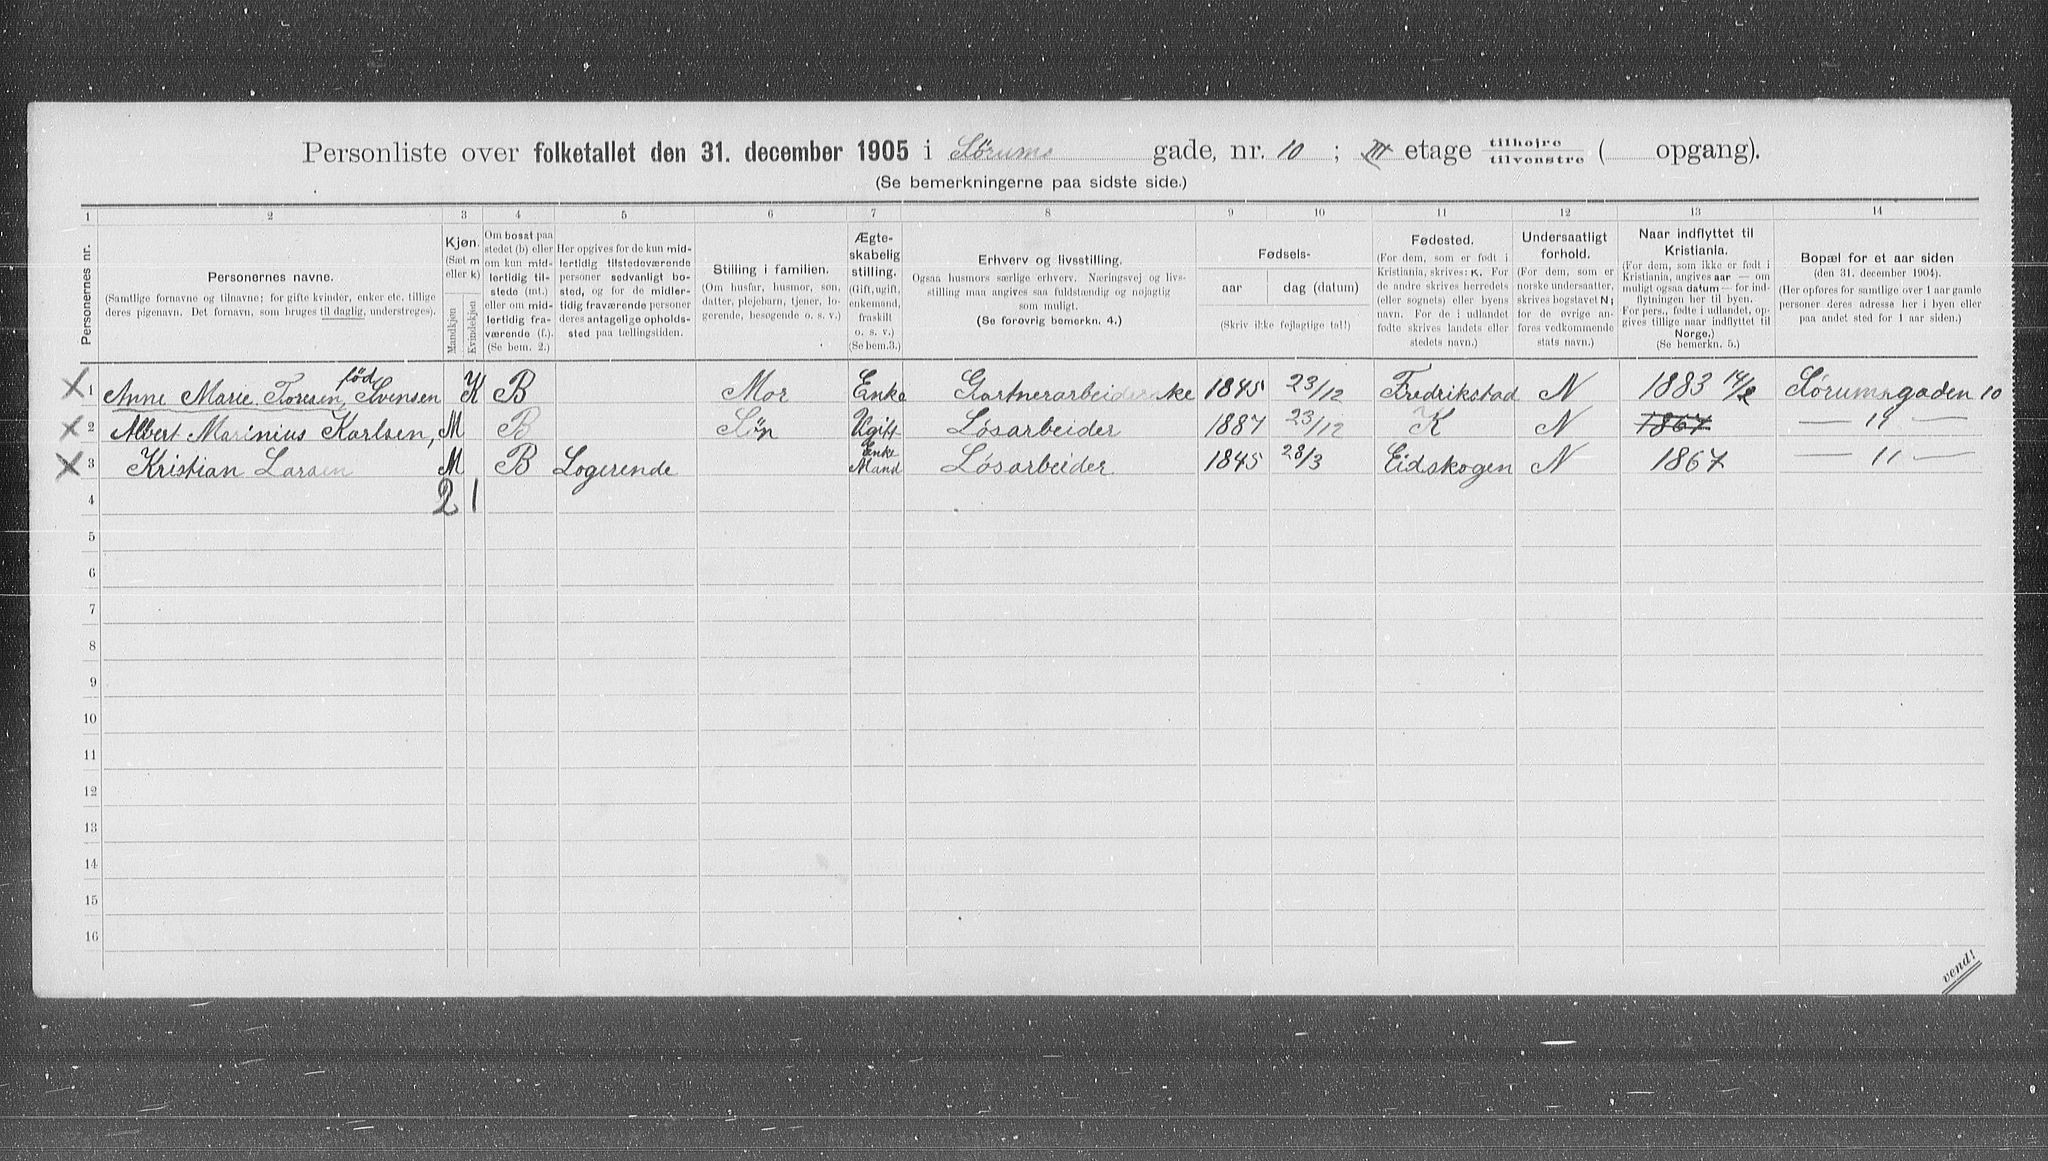 Personliste over folketallet den 31. december 1905 i Sørums gade, nr. 10; III etage tilhøjre tilvenstre ( opgang).
(Se bemerkningerne paa sidste side.)
1 2 3 4 5 6 7 8 9 10 11 12 13 14
Personernes nr.
Personernes navne.
(Samtlige fornavne og tilnavne; for gifte kvinder, enker etc. tillige deres pigenavn. Det fornavn, som bruges til daglig, understreges).
Kjøn.
(Sæt m eller k)
Mandkjøn
Kvindekjøn
Om bosat paa stedet (b) eller om kun midlertidig tilstede (mt.) eller om midlertidig fraværende (f.). (Se bem. 2.)
Her opgives for de kun midlertidig tilstedeværende personer sedvanlig bosted, og for de midlertidig fraværende personer deres antagelige opholdssted paa tællingstiden.
Stilling i familien.
(Om husfar, husmor, søn, datter, plejebarn, tjener, logerende, besøgende o. s. v.)
Ægteskabelig stilling.
(Gift, ugift, enkemand, fraskilt o. s. v.)
(Se bem.3.)
Erhverv og livsstilling.
Ogsaa husmors særlige erhverv. Næringsvej og livsstilling maa angives saa fuldstændig og nøjagtig som muligt.
(Se forøvrig bemerkn. 4.)
Fødsels-
aar
dag (datum)
(Skriv ikke fejlagtige tal!)
Fødested.
(For dem, som er født i Kristiania, skrives: K. For de andre skrives herredets (eller sognets) eller byens navn. For de i udlandet fødte skrives landets eller stedets navn.)
Undersaatligt forhold.
(For dem, som er norske undersaatter, skrives bogstavet N; for de øvrige anføres vedkommende stats navn.)
Naar indflyttet til Kristiania.
(For dem, som ikke er født i Kristiania, angives aar — om muligt ogsaa datum — for indflytningen her til byen. For pers., fødte i udlandet, opgives tillige naar indflyttet til Norge.)
(Se bemerkn. 5.)
Bopæl for et aar siden
(den 31. december 1904).
(Her opføres for samtlige over 1 aar gamle personer deres adresse her i byen eller paa andet sted for 1 aar siden.)
1 Anne Marie Toresen, född Svensen K B Mor Enke Gartnerarbeiderenke 1845 23/12 Fredrikstad N 1883 14/2 Sørumsgaden 10
2 Albert Marinius Karlsen, M B Søn Ugift Løsarbeider 1887 23/12 K N 1867 — 11 —
3 Kristian Larsen M B Logerende Enke Mand Løsarbeider 1845 28/3 Eidskogen N 1867 — 11 —
4 2 1
5
6
7
8
9
10
11
12
13
14
15
16
vend!